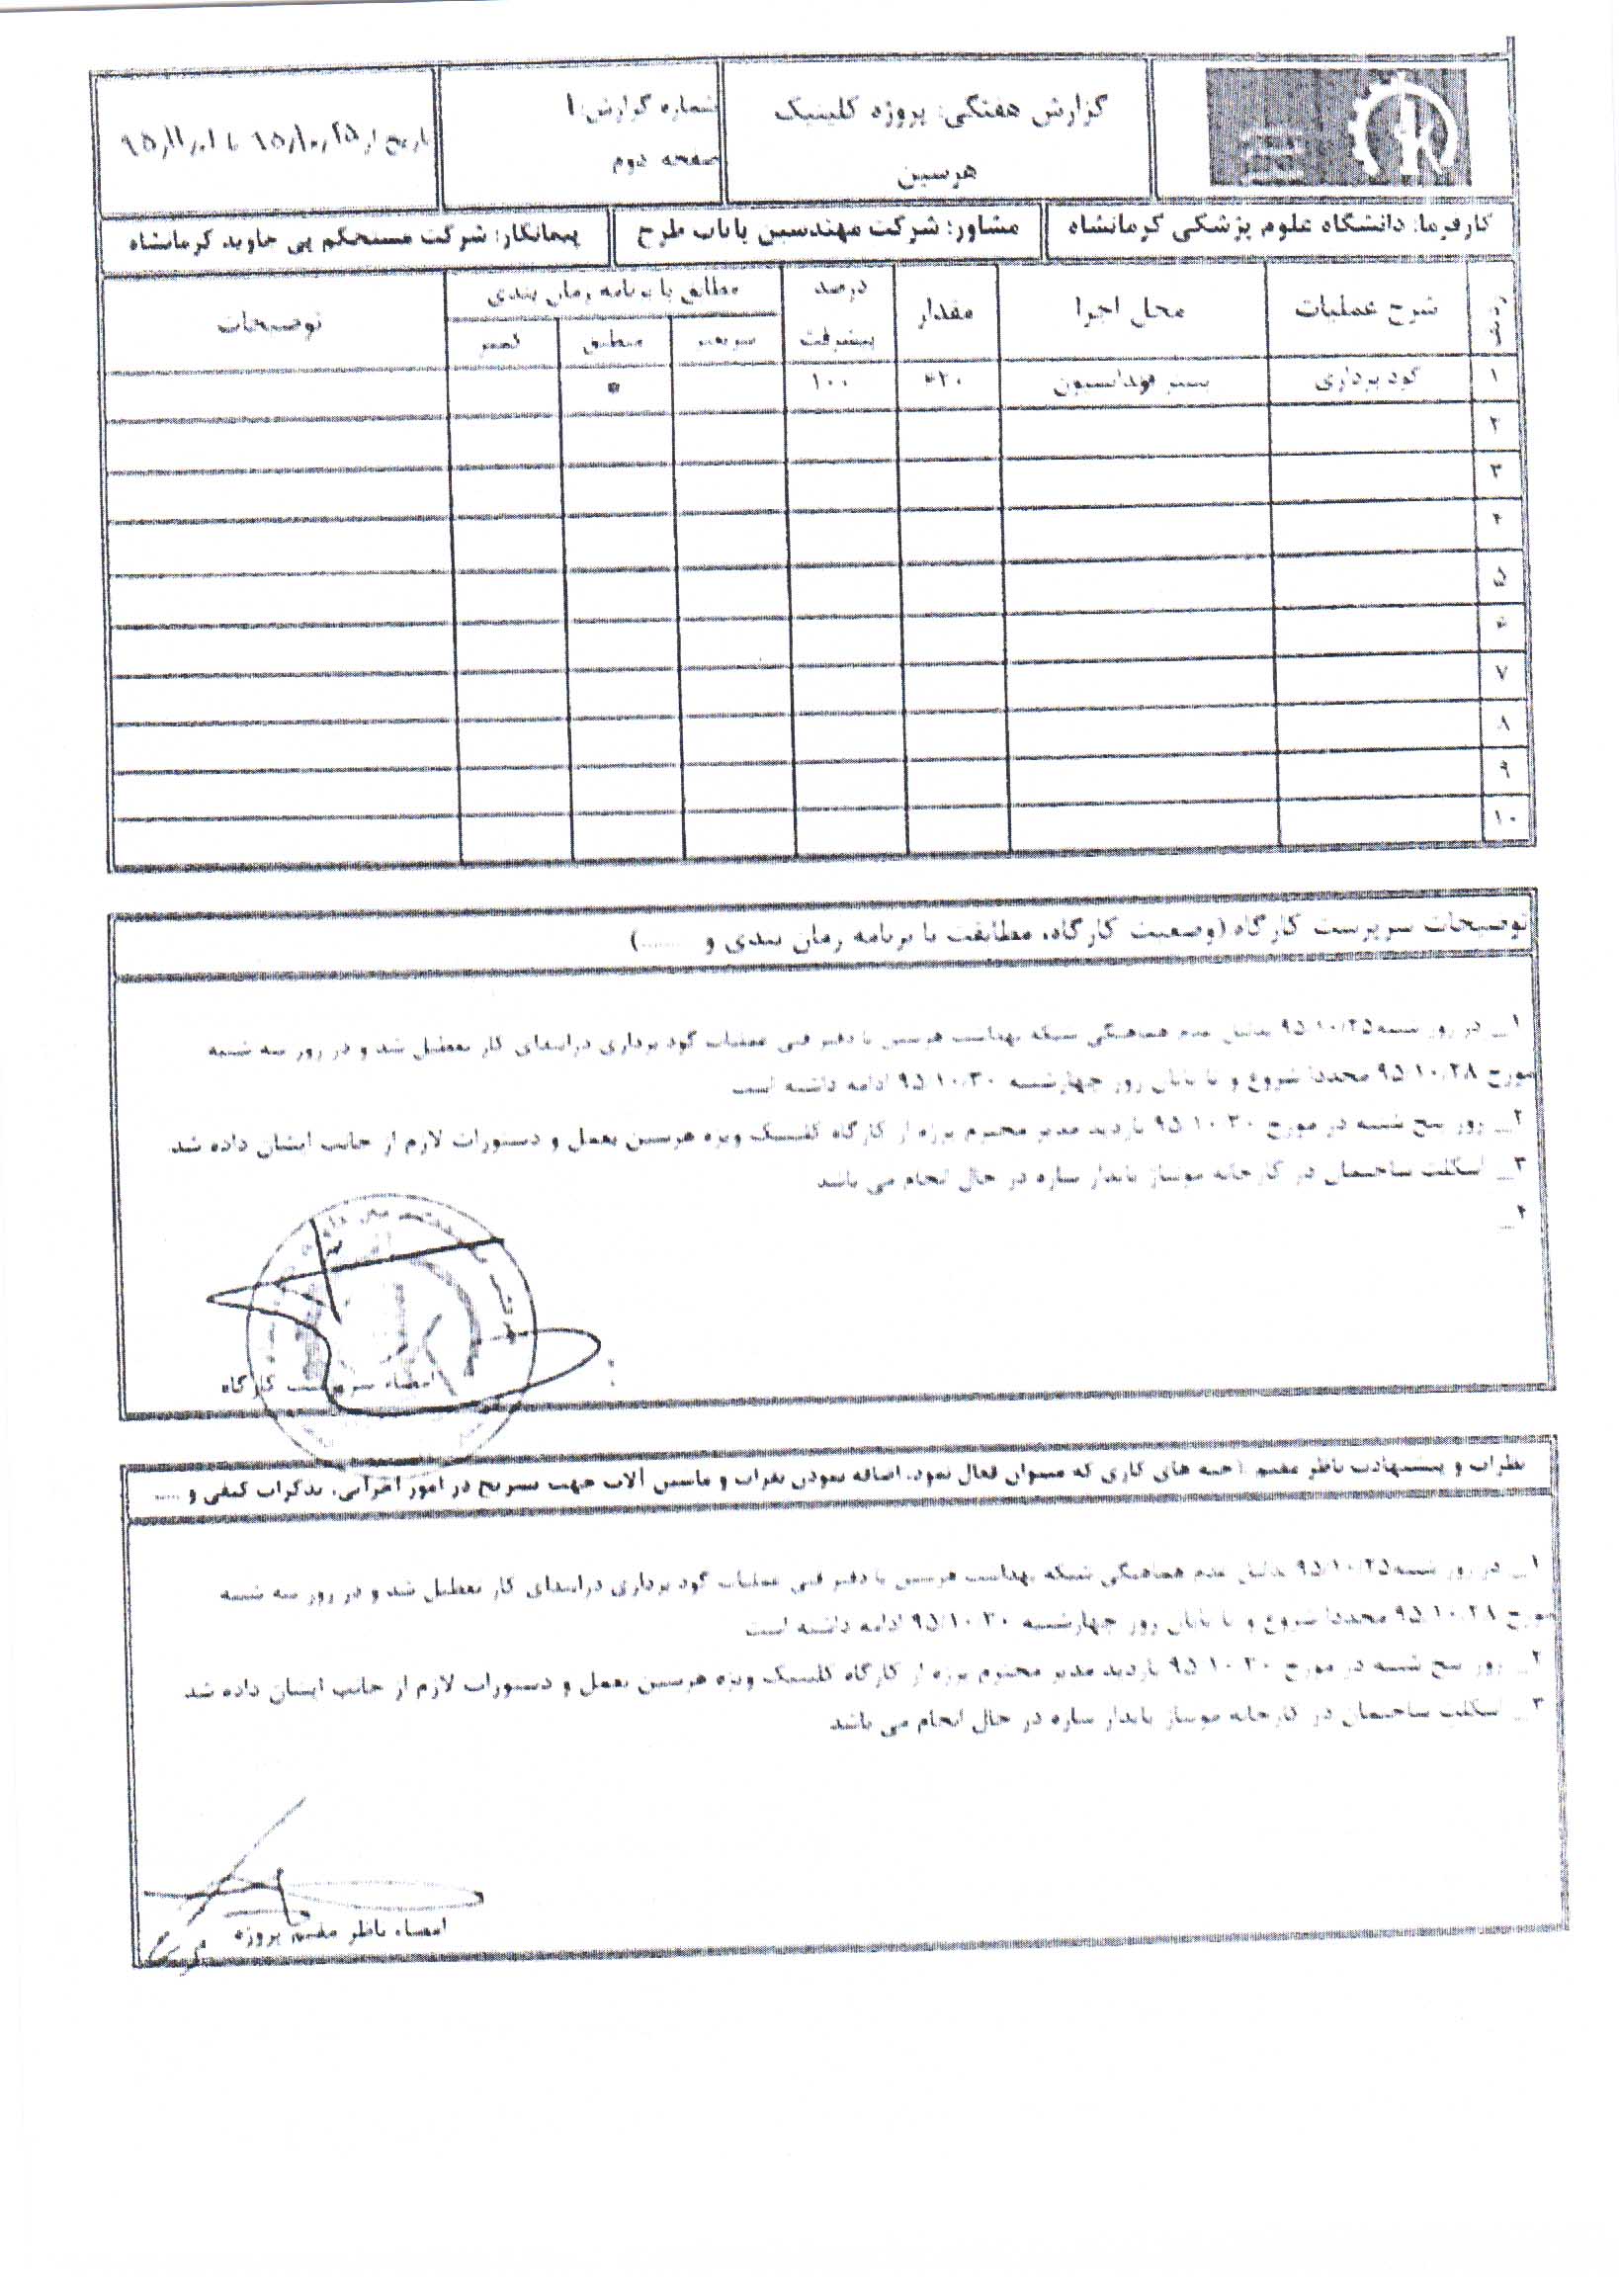 گزارش هفتگی: پروژه کلینیک
هرسین
شماره گزارش: ۱
صفحه دوم
تاریخ از ۹۵/۱۰/۲۵ تا ۹۵/۱۱/۱
کارفرما: دانشگاه علوم پزشکی کرمانشاه
مشاور: شرکت مهندسین باناب طرح
پیمانکار: شرکت مستحکم پی جاوید کرمانشاه
ردیف
شرح عملیات
محل اجرا
مقدار
درصد
پیشرفت
مطابق با برنامه زمان بندی
سریعتر
منطبق
کمتر
توضیحات
۱ گود برداری بستر فونداسیون ۴۲۰ ۱۰۰ *
۲
۳
۴
۵
۶
۷
۸
۹
۱۰
توضیحات سرپرست کارگاه (وضعیت کارگاه، مطابقت با برنامه زمان بندی و .........)
۱_ در روز شنبه ۹۵/۱۰/۲۵ بدلیل عدم هماهنگی شبکه بهداشت هرسین با دفتر فنی عملیات گود برداری در ابتدای کار تعطیل شد و در روز سه شنبه
مورخ ۹۵/۱۰/۲۸ مجددا شروع و تا پایان روز چهارشنبه ۹۵/۱۰/۳۰ ادامه داشته است
۲_ روز پنج شنبه در مورخ ۹۵/۱۰/۳۰ بازدید مدیر محترم پرژه از کارگاه کلینیک ویژه هرسین بعمل و دستورات لازم از جانب ایشان داده شد
۳_ اسکلت ساختمان در کارخانه موساز پایدار سازه در حال انجام می باشد
۴_
امضاء سرپرست کارگاه
نظرات و پیشنهادت ناظر مقیم (جبه های کاری که میتوان فعال نمود، اضافه نمودن نفرات و ماشین آلات جهت تسریع در امور اجرایی، تذکرات کیفی و ......
۱_ در روز شنبه ۹۵/۱۰/۲۵ بدلیل عدم هماهنگی شبکه بهداشت هرسین با دفتر فنی عملیات گود برداری در ابتدای کار تعطیل شد و در روز سه شنبه
مورخ ۹۵/۱۰/۲۸ مجددا شروع و تا پایان روز چهارشنبه ۹۵/۱۰/۳۰ ادامه داشته است
۲_ روز پنج شنبه در مورخ ۹۵/۱۰/۳۰ بازدید مدیر محترم پرزه از کارگاه کلینیک ویژه هرسین بعمل و دستورات لازم از جانب ایشان داده شد
۳_ اسکلت ساختمان در کارخانه موساز پایدار سازه در حال انجام می باشد
امضاء ناظر مقیم پروژه